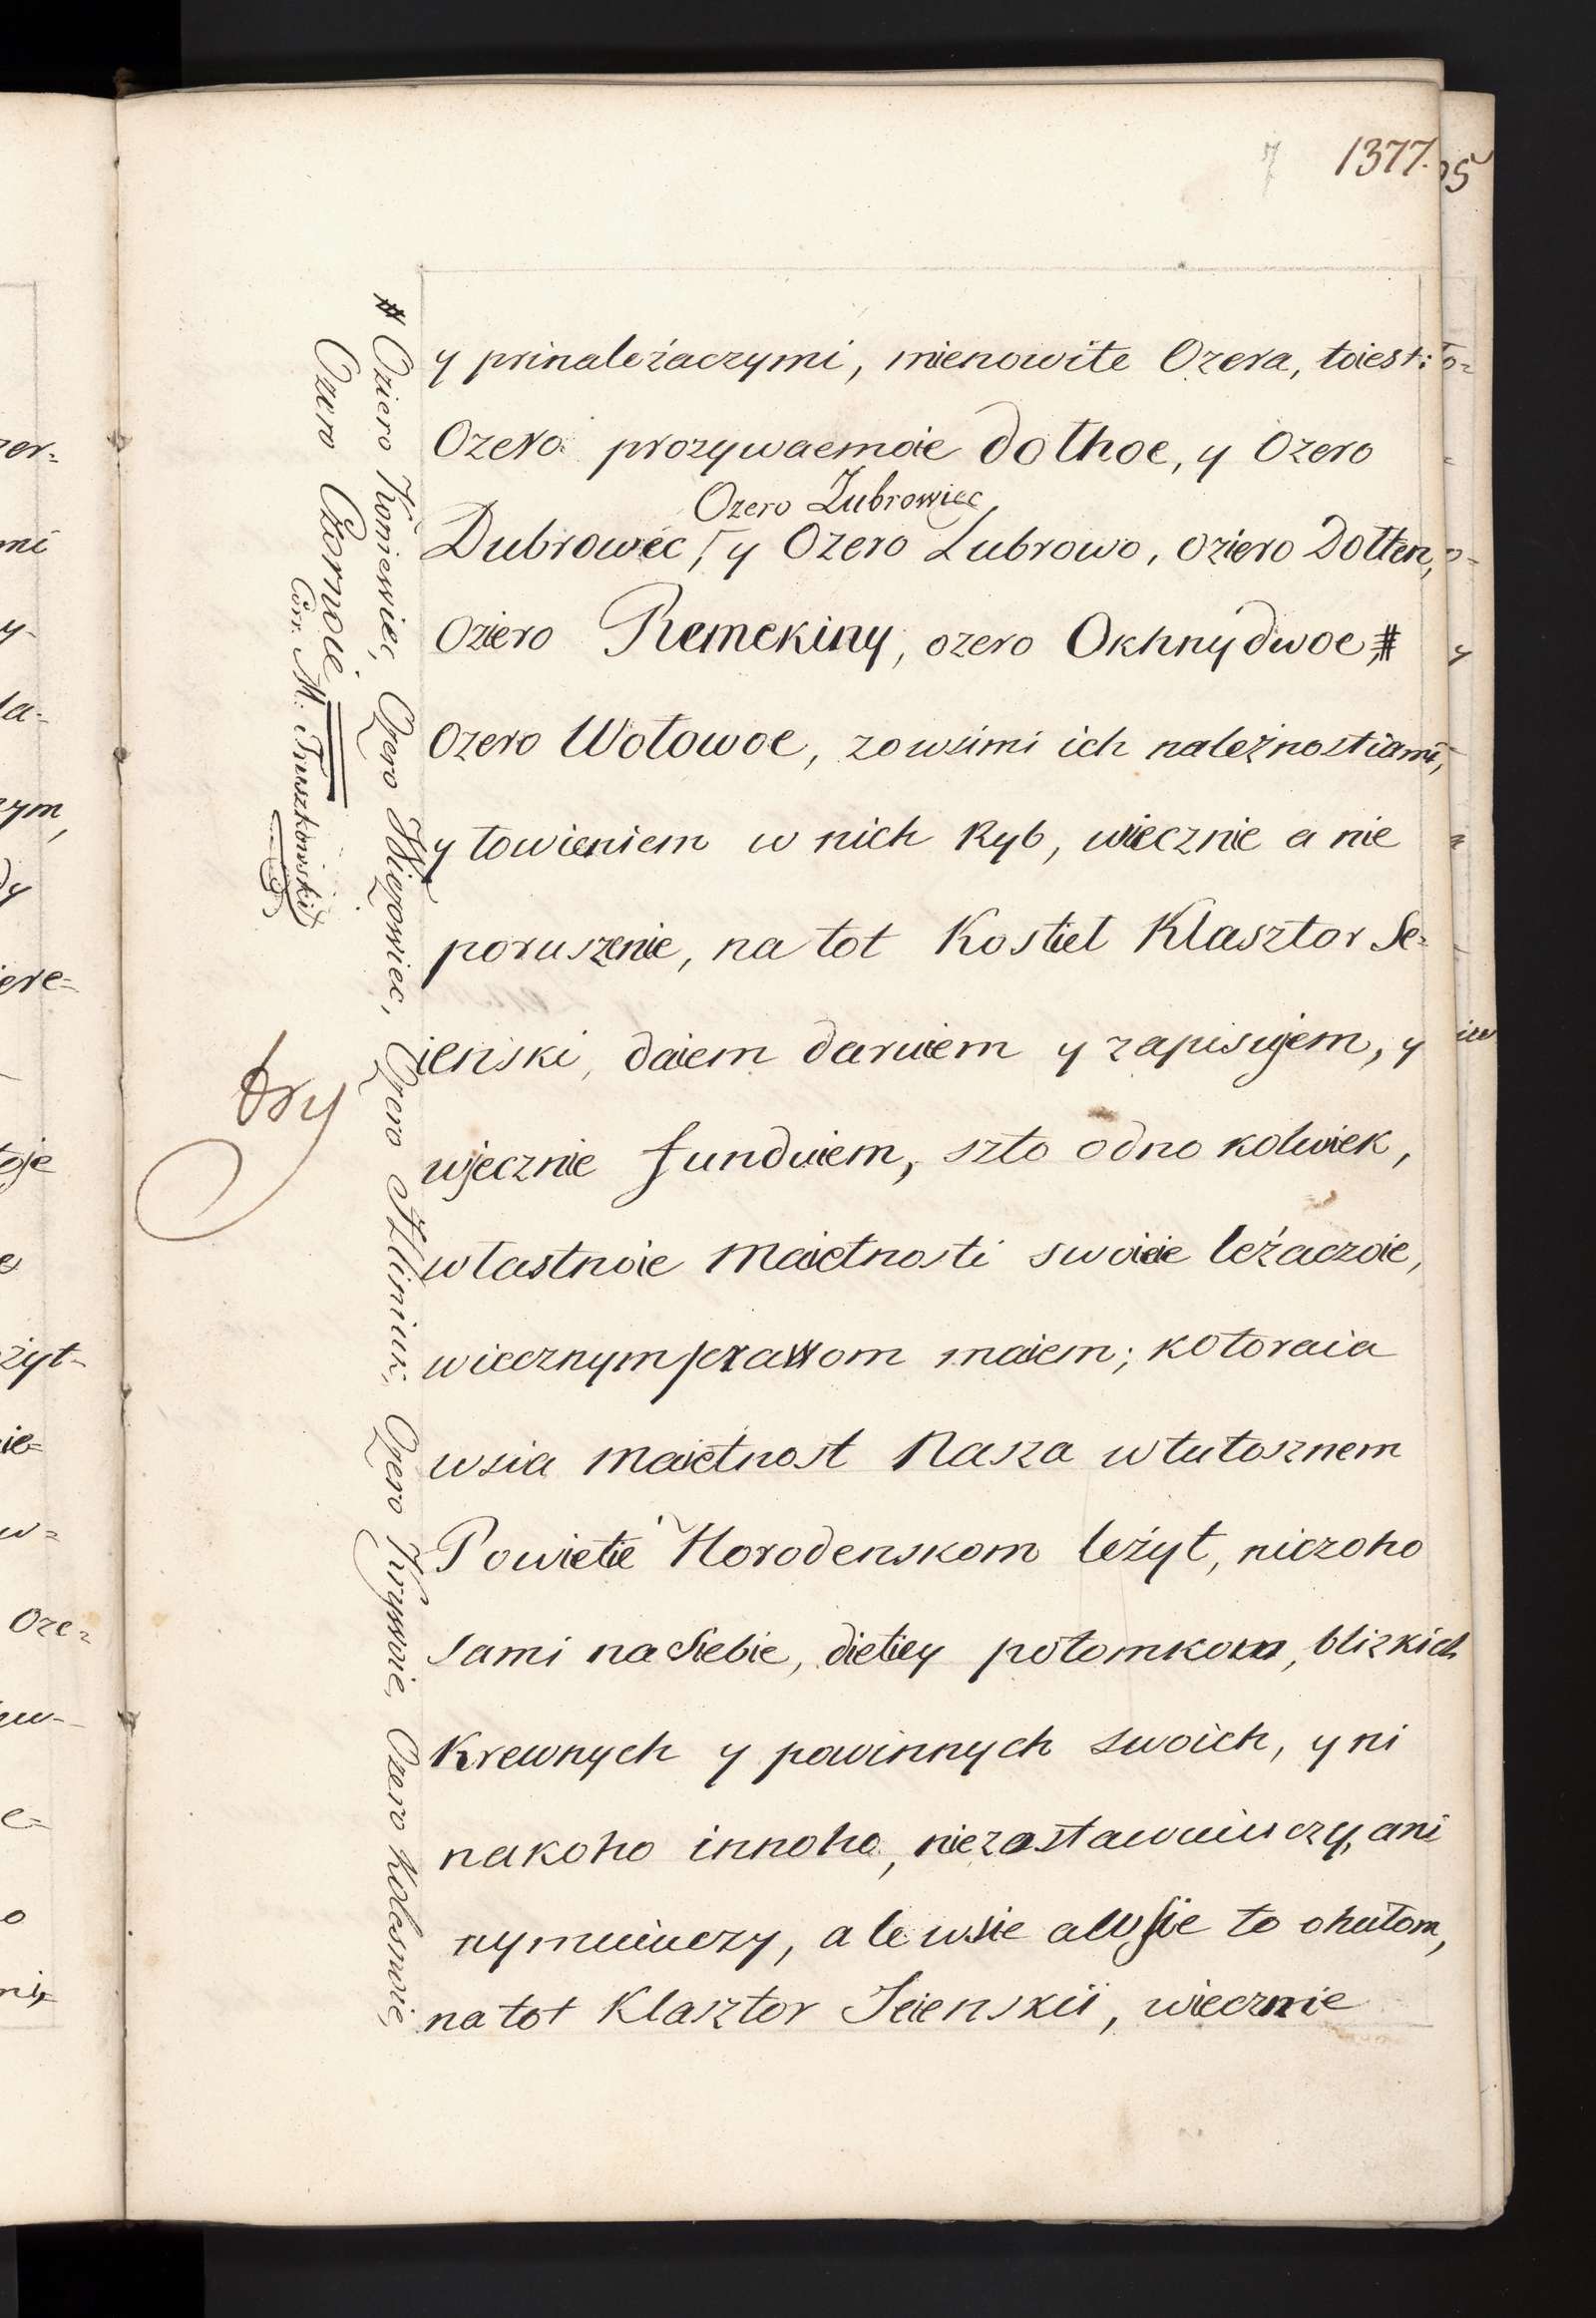 7 1377.
y prinależaczymi, mienowite Ozera, toiest:
Ozero prozywaemoie dołhoe, y Ozero
Ozero Zubrowiec
Dubrowec, y Ozero Lubrowo, oziero Dołten,
oziero Remekiny, ozero Okhnydwoe, #
Ozero Wołowoe, zowsimi ich należnostiami,
y łowieniem w nich Ryb, wiecznie a nie
poruszenie, na tot Kostieł Klasztor Se=
ienski, daiem daruiem y zapisujem, y
wjecznie funduiem, szto odno kolwiek,
własnoie Maietnosti swoieie leżaczoie,
wiecznym prawom maiem; kotoraia
wsia Maietnost Nasza w tutosznem
Powietie Horodenskom leżyt, niczoho
sami na Siebie, dietiey potomkom, blizkich
Krewnych y powinnych swoich, y ni
nakoho innoho, niezostawuiuczy, ani
uymuiuczy, ale wsie alwsie to ohułom,
na tot Klasztor Seienskii, wiecznie
# Oziero Koniewiec, Ozero Wiezowiec, Ozero Hliniuk, Ozero Krywoie, Ozero Kolesnoie,
Ozero Czornoie
Corr. M: Truszkowski
try